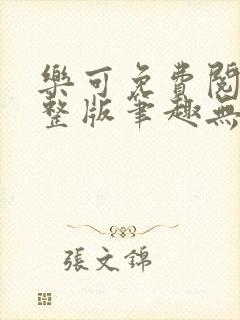 樂可免費閱
整版筆趣無
張文錦